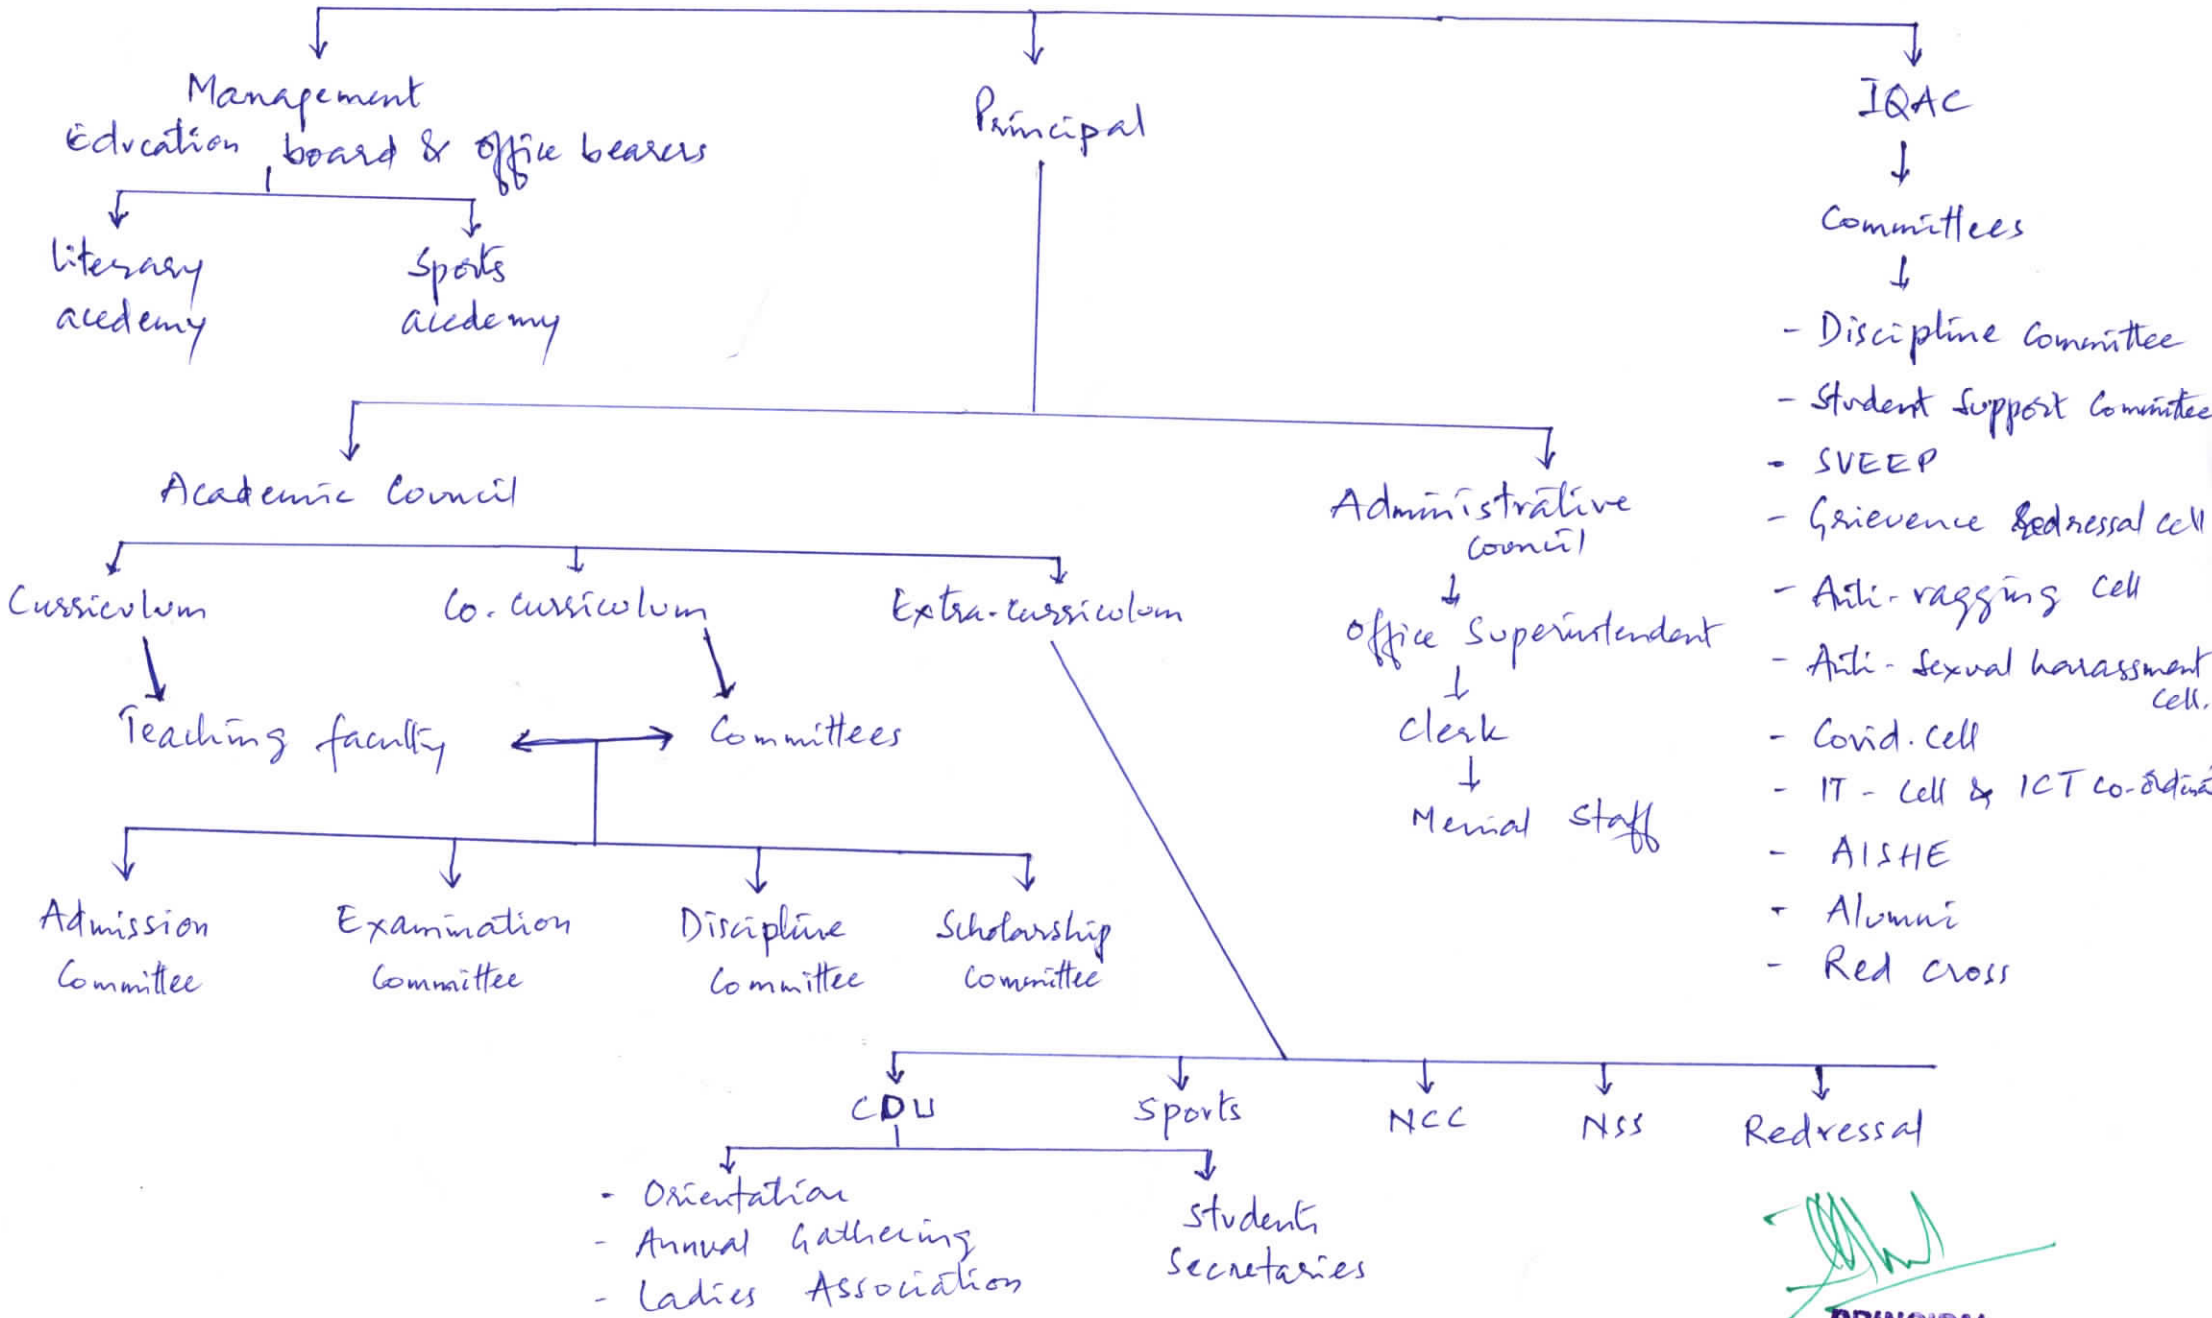 Management
Education board & office bearers
Literary
acedemy
Sports
acedemy
Principal
IQAC
Committees
- Discipline Committee
- Student Support Committee
- SVEEP
- Grievence Redressal cell
- Anti-ragging Cell
- Anti-Sexual harassment
cell.
- Covid. Cell
- IT - Cell & ICT Co-ordina
- AISHE
- Alumni
- Red cross
Academic Council
Administrative
Council
Office Superintendent
Clerk
Menial Staff
Curriculum
Co. curriculum
Extra-curriculum
Teaching faculty
Committees
Admission
Committee
Examination
Committee
Discipline
Committee
Scholarship
Committee
CDU
Sports
NCC
NSS
Redressal
- Orientation
- Annual Gathering
- Ladies Association
Students
Secretaries